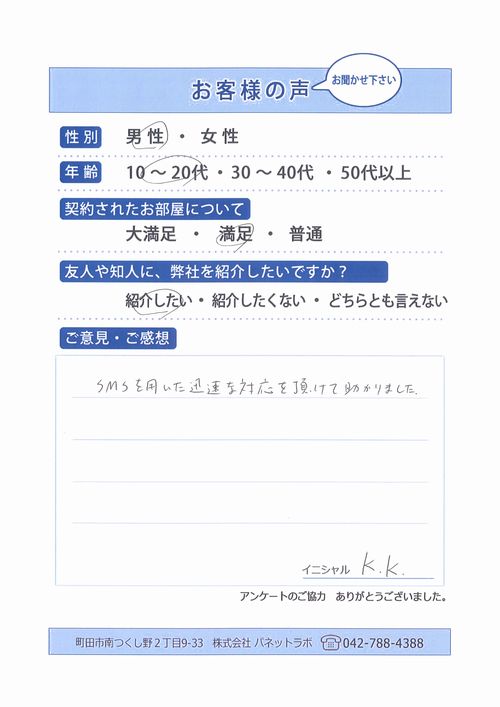 お客様の声
お聞かせ下さい
性別 男性 ・ 女性
年齢 10 ～ 20代 ・ 30 ～ 40代 ・ 50代以上
契約されたお部屋について
大満足 ・ 満足 ・ 普通
友人や知人に、弊社を紹介したいですか？
紹介したい ・ 紹介したくない ・ どちらとも言えない
ご意見・ご感想
SMSを用いた迅速な対応を頂けて助かりました.
イニシャル K.K.
アンケートのご協力 ありがとうございました。
町田市南つくし野２丁目9-33 株式会社 パネットラボ ☏042-788-4388